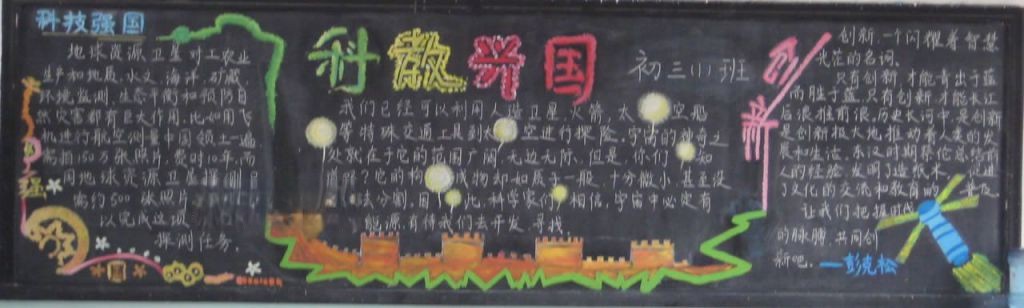 科技强国
地球资源卫星对工农业
生产和地质、水文、海洋、矿藏
环境监测、生态平衡和预防自
然灾害都有巨大作用。比如用飞
机进行航空测量中国领土一遍
需拍150万张照片,费时10年,而
用地球资源卫星探测只
需约500张照片
以完成这项
探测任务。
科教兴国
初三(1)班
我们已经可以利用人造卫星、火箭,太空船
等特殊交通工具到太空进行探险,宇宙的神奇之
处就在于它的范围广阔,无边无际、但是,你们知
道吗?它的构成物却如质子一般,十分微小,甚至没
法分割。因此,科学家们相信,宇宙中必定有
能源,有待我们去开发、寻找。
创新
创新,一个闪耀着智慧
光茫的名词。
只有创新,才能青出于蓝
而胜于蓝,只有创新,才能长江
后浪推前浪。历史长河中,是创新
是创新极大地推动着人类的发
展和生活。东汉时期蔡伦总结前
人的经验,发明了造纸术,促进
了文化的交流和教育的普及
让我们把握时代
的脉膊,共同创
新吧。——彭克松